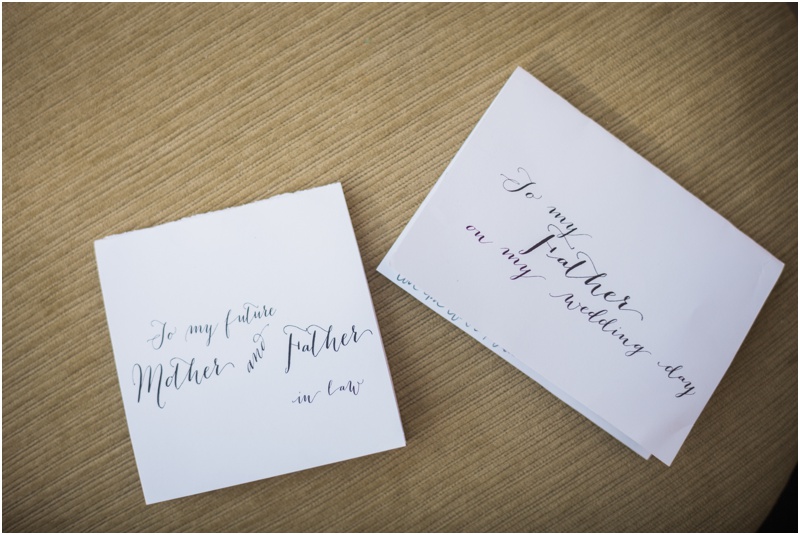 To my future
Mother and Father
in law
To my
Father
on my wedding day